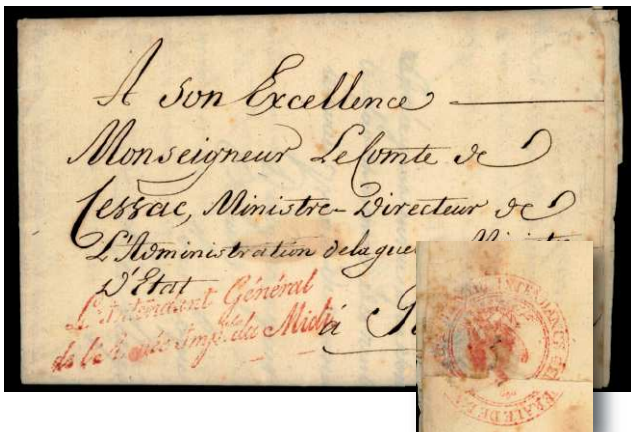 A Son Excellence
Monseigneur Le Comte de
Cessac, Ministre-Directeur de
L'Administration de la gue Ministre
D'Etat
à
L'Intendant Général
de l'Armée Imp.le du Midi
INTENDANCE